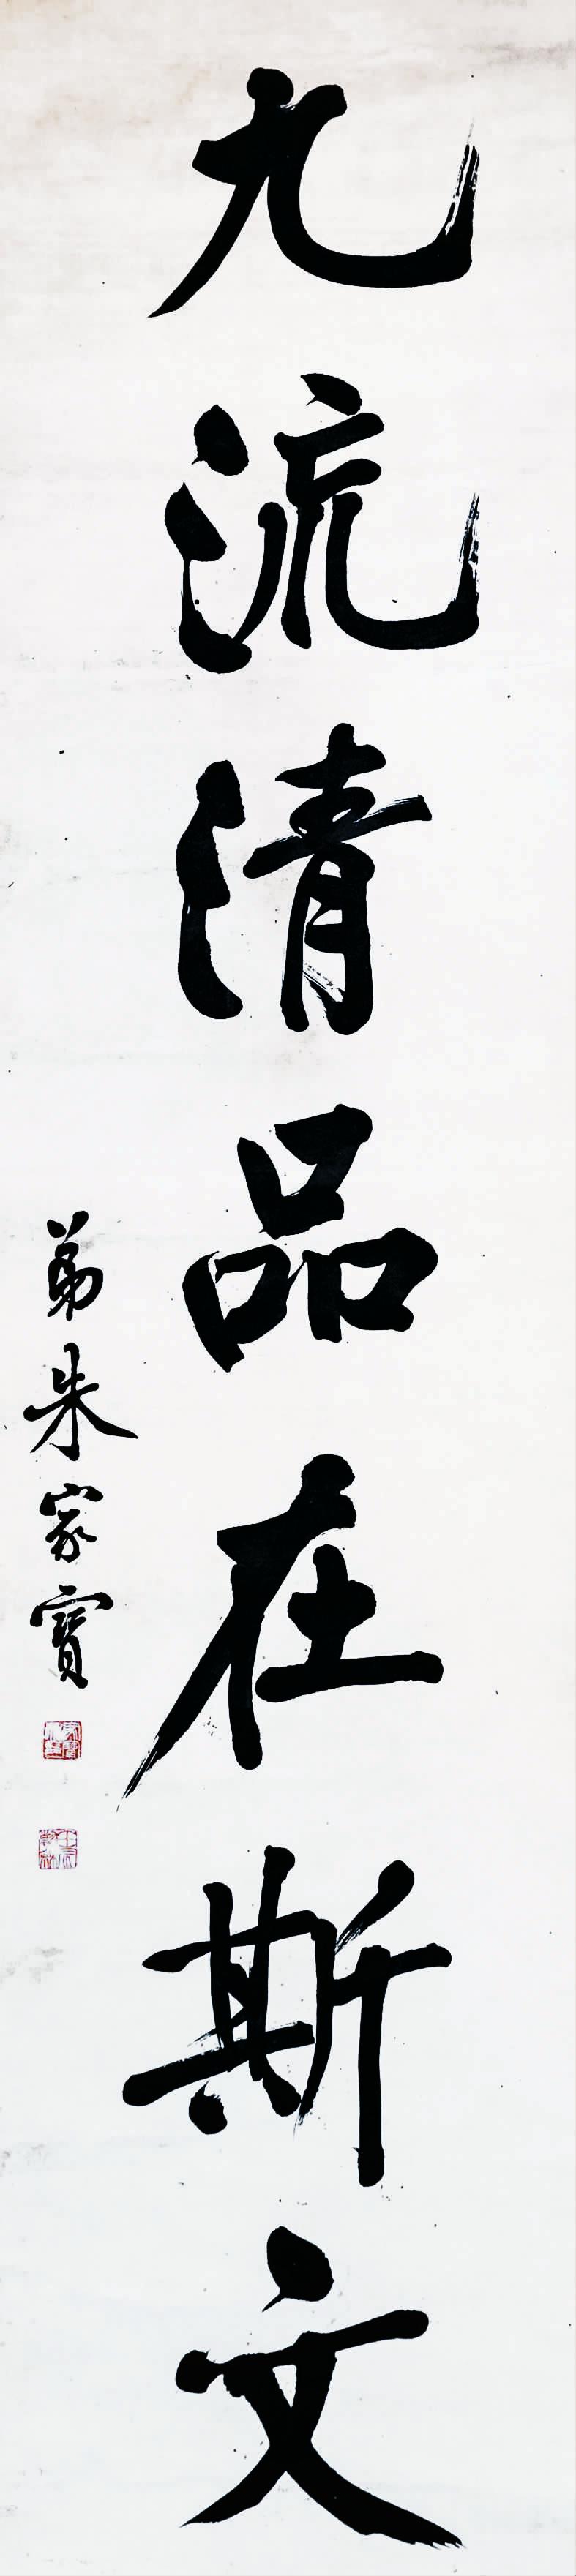 九流清品在斯文
弟朱家寶